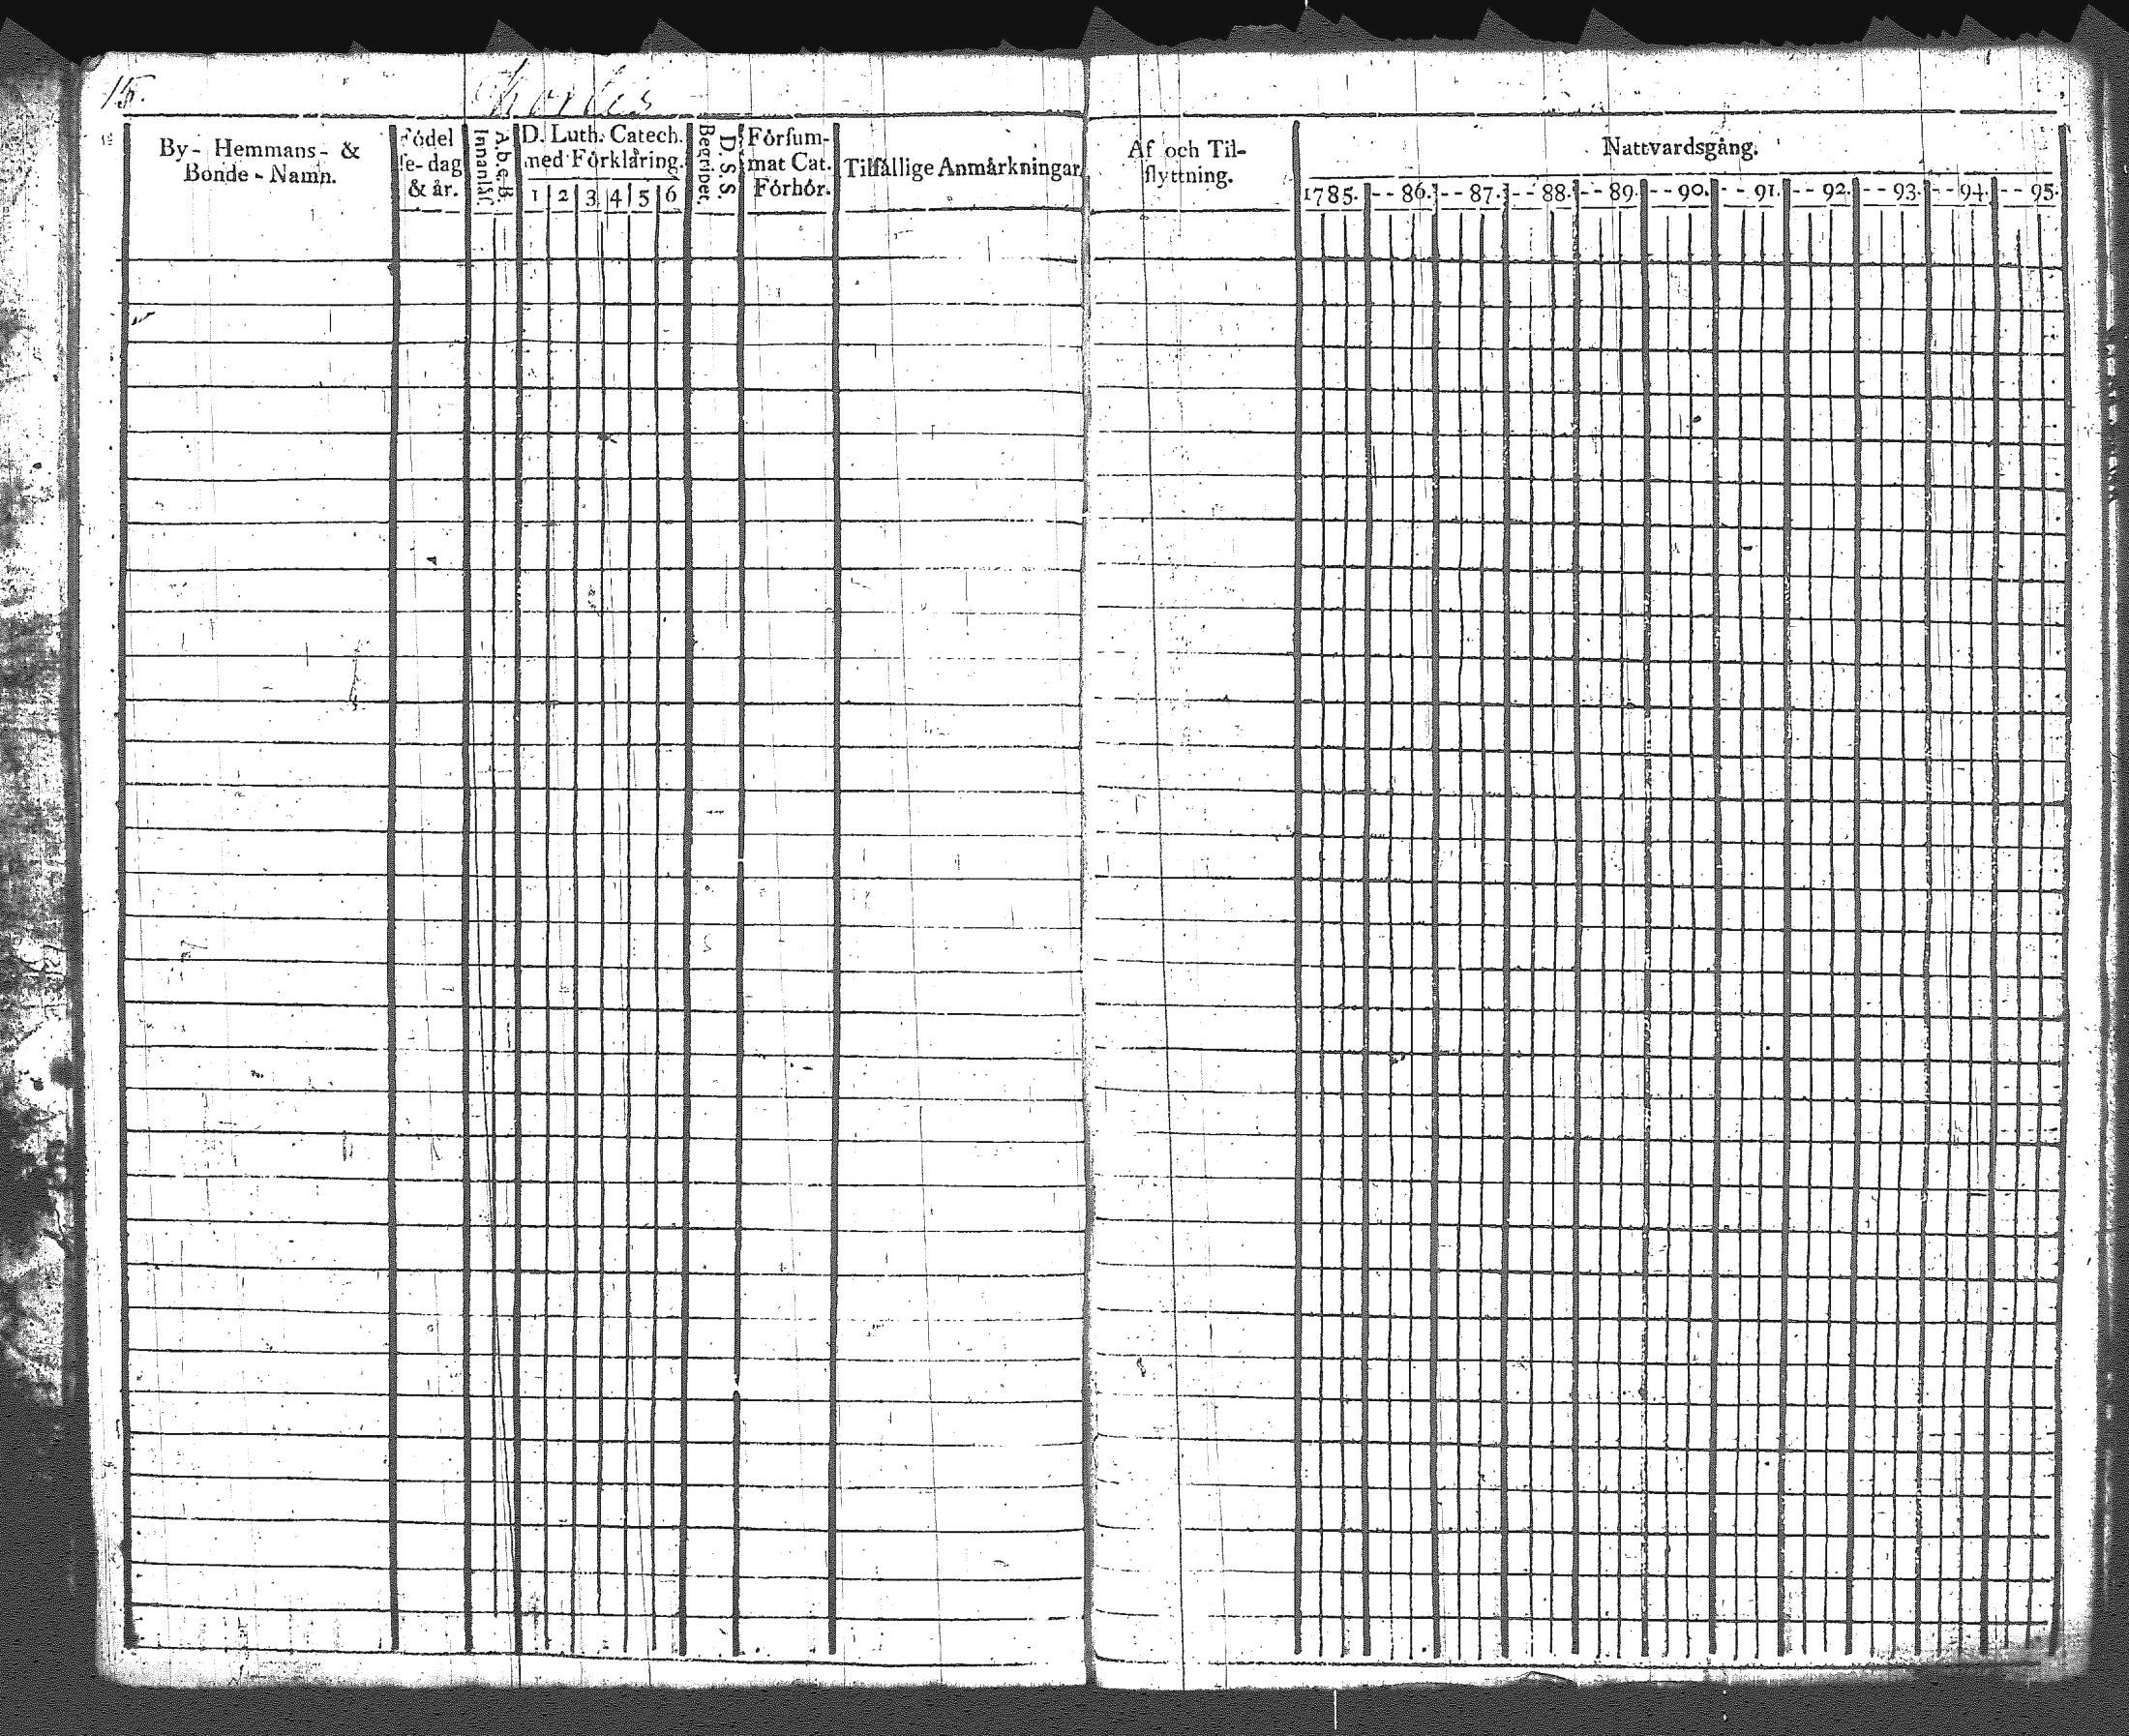 15.
By- Hemmans- &
Bonde - Namn.
Fódel
se- dag
& år.
A.b.c.B.
Innanläs.
D. Luth. Catech.
med Fórklåring.
1 2 3 4 5 6
D. S. S.
Begripet.
Fórsum-
mat Cat.
Fórhór.
Tilfållige Anmårkningar
Af och Til-
flyttning.
Nattvardsgång.
1785. - - 86. - - 87. - - 88. - - 89. - - 90. - - 91. - - 92. - - 93. - - 94. - - 95.